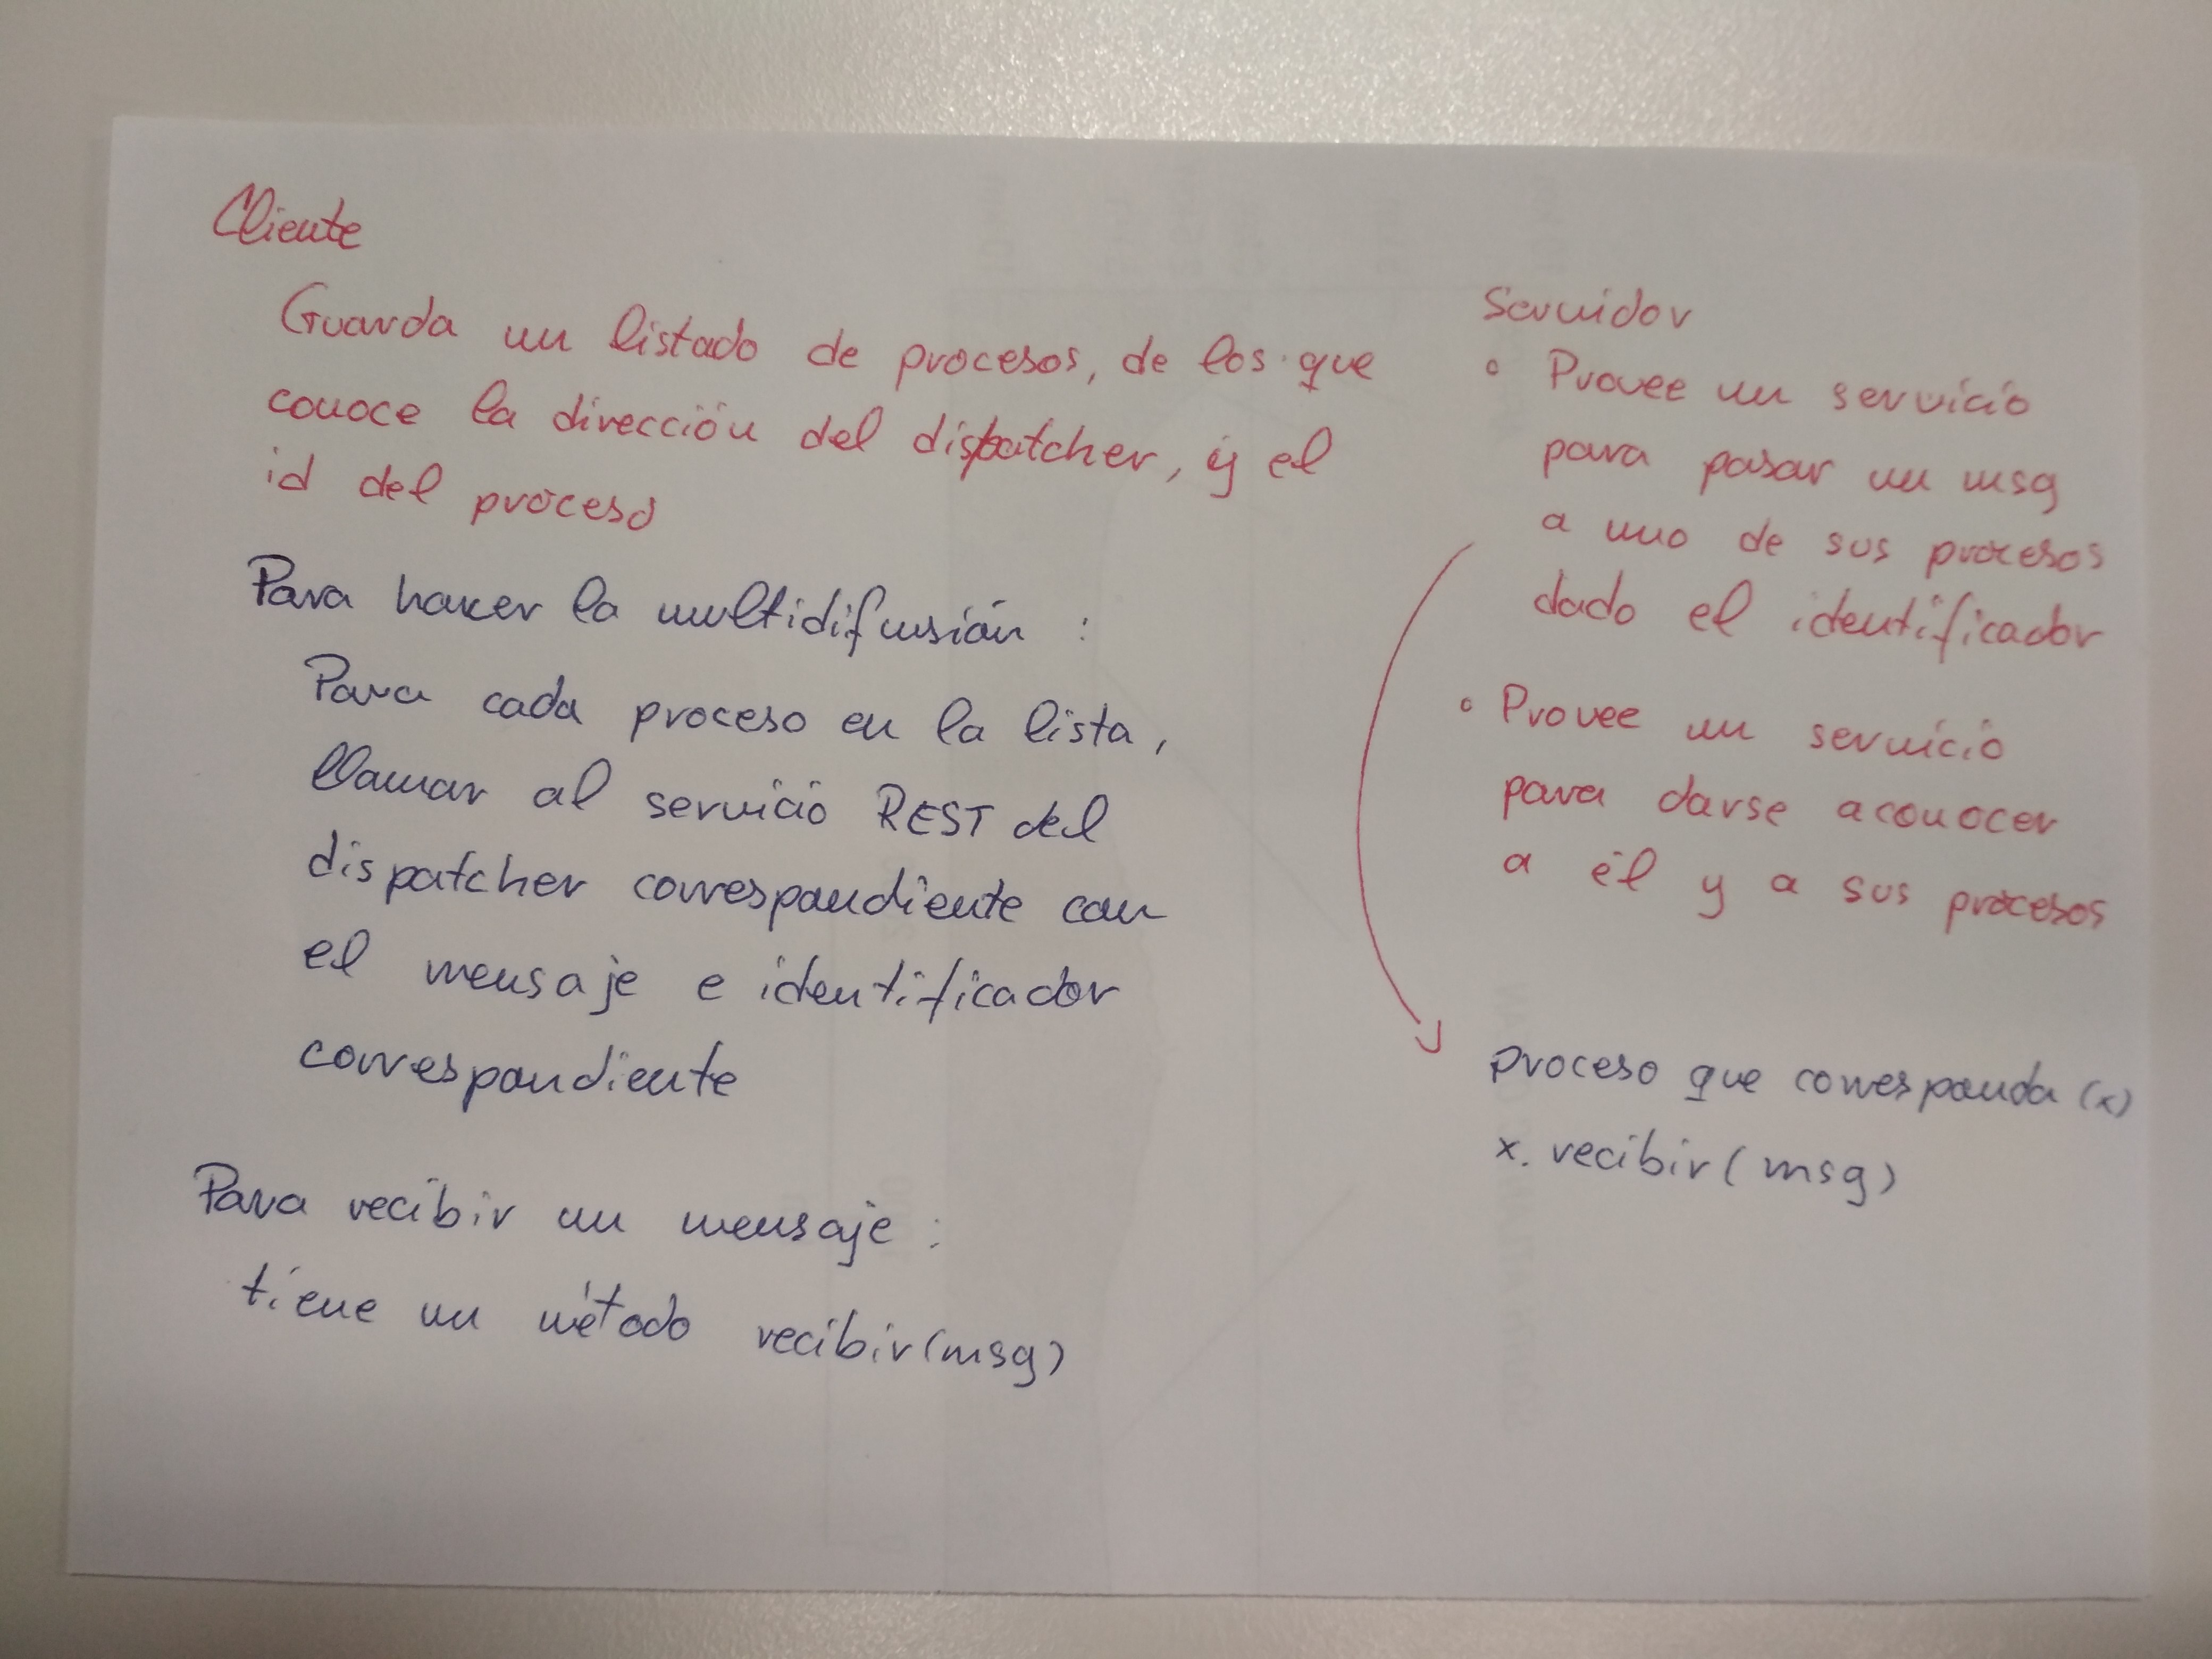 Cliente
Guarda un listado de procesos, de los que
conoce la dirección del dispatcher, y el
id del proceso
Para hacer la multidifusión :
Para cada proceso en la lista,
llamar al servicio REST del
dispatcher correspondiente con
el mensaje e identificador
correspondiente
Para recibir un mensaje :
tiene un método recibir(msg)
Servidor
° Provee un servicio
para pasar un msg
a uno de sus procesos
dado el identificador
° Provee un servicio
para darse a conocer
a él y a sus procesos
proceso que corresponda (x)
x. recibir( msg)